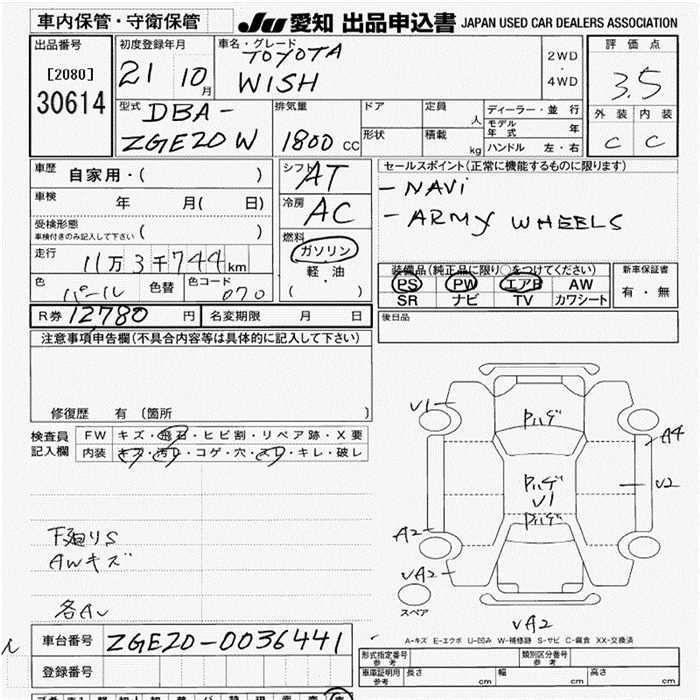 車内保管・守衛保管
JU 愛知 出品申込書 JAPAN USED CAR DEALERS ASSOCIATION
出品番号
[2080]
30614
初度登録年月
21 10月
車名・グレード
TOYOTA
WISH
2WD
・
4WD
評価点
3.5
外装 内装
C C
型式
DBA-
ZGE20W
排気量
1800 CC
ドア
形状
定員
人
積載
kg
ディーラー・並行
モデル年式 年
ハンドル 左・右
車歴
自家用・( )
車検
年 月( 日)
受検形態
車検付きのみ記入して下さい ( )
走行
11万3千744km
色
パール
色替
色コード
070
シフト
AT
冷房
AC
燃料
ガソリン
軽油
( )
セールスポイント(正常に機能するものに限ります)
- NAVi
- ARMY WHEELS
装備品(純正品に限り○をつけてください)
PS PW エアB AW
SR ナビ TV カワシート
新車保証書
有・無
R券 12780 円
名変期限 月 日
後日品
注意事項申告欄(不具合内容等は具体的に記入して下さい)
修復歴 有 〔箇所 〕
検査員記入欄
FW キズ・飛石・ヒビ割・リペア跡・X要
内装 キズ・汚れ・コゲ・穴・スレ・キレ・破レ
下廻りS
AWキズ
各AU
V1
Pハゲ
A4
Pハゲ
V1
V2
Pハゲ
A2
VA2
スペア
VA2
A-キズ E-エクボ U-凹み W-補修跡 S-サビ C-腐食 XX-交換済
車台番号
ZGE20-0036441
登録番号
形式指定番号
参考
類別区分番号
参考
車庫証明用
参考
長さ cm
幅 cm
高さ cm